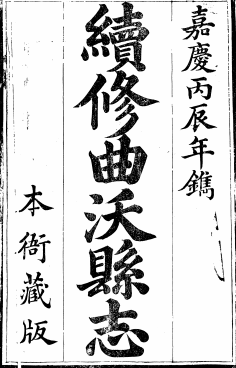 嘉慶丙辰年鐫
續修曲沃縣志
本衙藏版